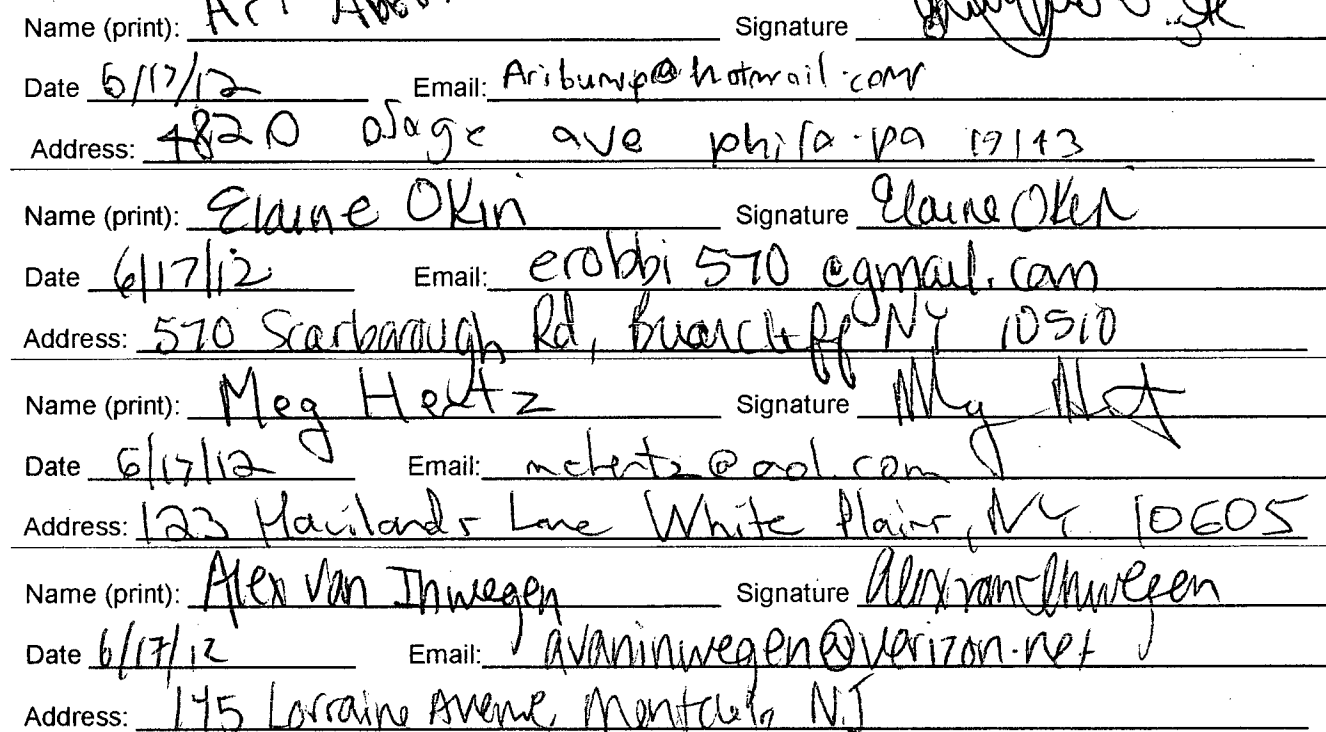 Name (print): Signature
Date 6/17/12 Email: Aribump@hotmail.com
Address: 4820 osage ave phila. pa 19143
Name (print): Elaine Okin Signature Elaine Okin
Date 6/17/12 Email: erobbi570@gmail.com
Address: 570 Scarborough Rd, Briarcliff NY 10510
Name (print): Meg Hertz Signature Meg
Date 6/17/12 Email: mchertz@aol.com
Address: 123 Havilands Lane White Plains, NY 10605
Name (print): Alex Van Inwegen Signature Alex van Inwegen
Date 6/17/12 Email: avaninwegen@verizon.net
Address: Lorraine Avenue, Montclair, NJ